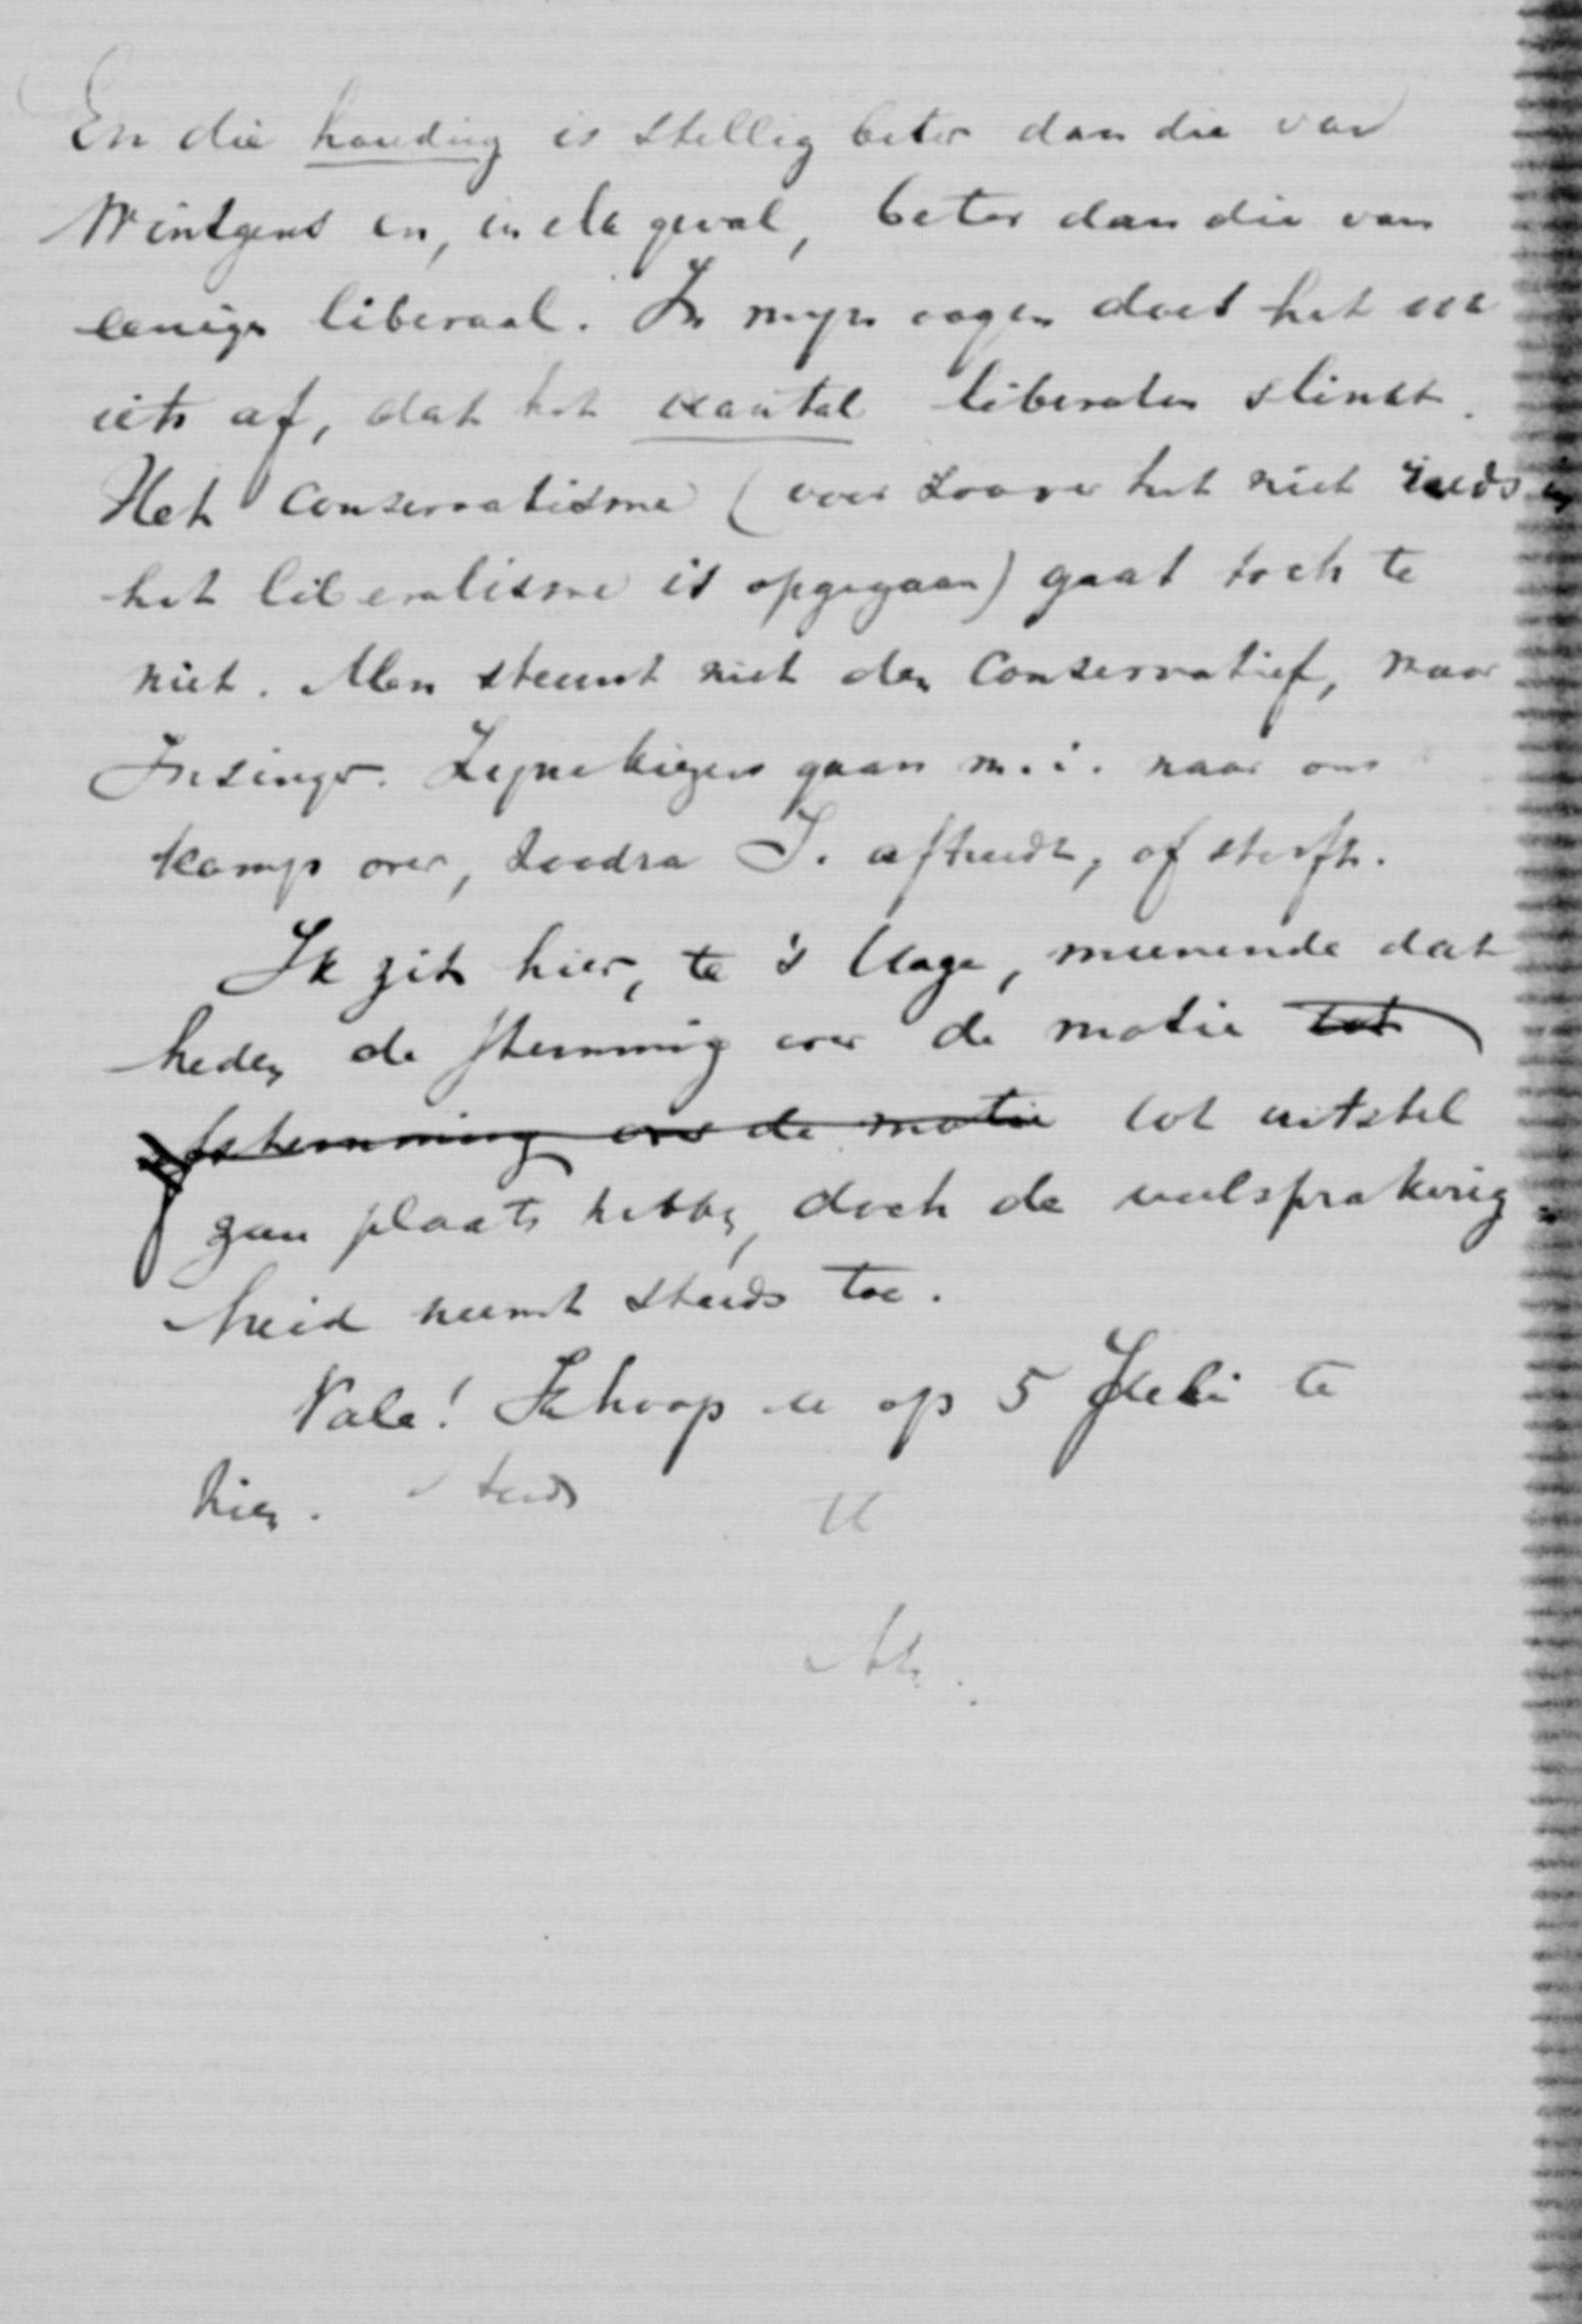 En die houding is stellig beter dan die van
Wintgens en, in elk geval, beter dan die van
eenige liberaal. In mijn oogen doet het
iets af, dat het aantal liberalen slinkt.
Het Conservatisme (voor zoover het niet reeds in
het liberalisme is opgegaan) gaat toch te
niet. Men steunt niet den Conservatief, maar
Insinger. Zijne kiezers gaan m.i. naar ons
kamp over, zoodra I. aftreedt, of sterft.
Ik zit hier, te 's Hage, meenende dat
heden de stemming over de motie tot
afstemming over de motie tot uitstel
zou plaats hebben, doch de veelsprakerig-
heid neemt steeds toe.
Vale! Ik hoop u op 5 Juli te
zien. steeds